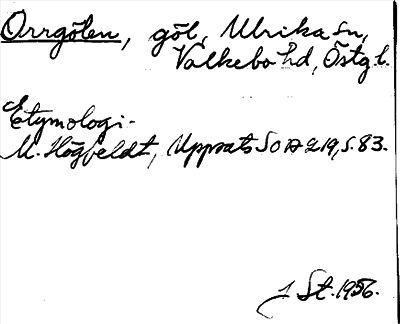 Orrgölen, göl, Ulrika sn,
Valkebo hd, Östg.l.
Etymologi.
M. Högfeldt, Uppsats SOA 219, s. 83.
J St. 1956.